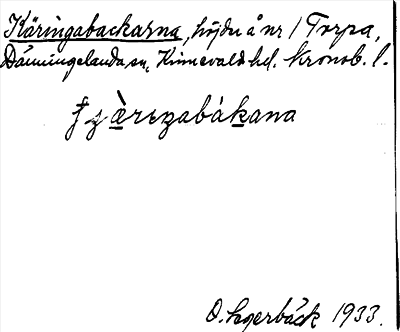 Käringabackarna, höjder å nr 1 Torpa,
Dänningelanda sn, Kinnevald hd. Kronob. l.
ɟʒæ̀rɩŋabákana
O. Lagerbäck 1933.